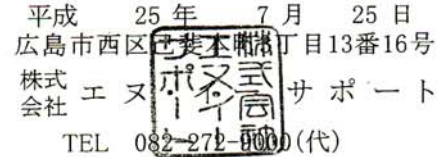 平成 25 年 7 月 25 日
広島市西区己斐本町3丁目13番16号
株式
会社 エヌ サポート
TEL 082-272-9000(代)